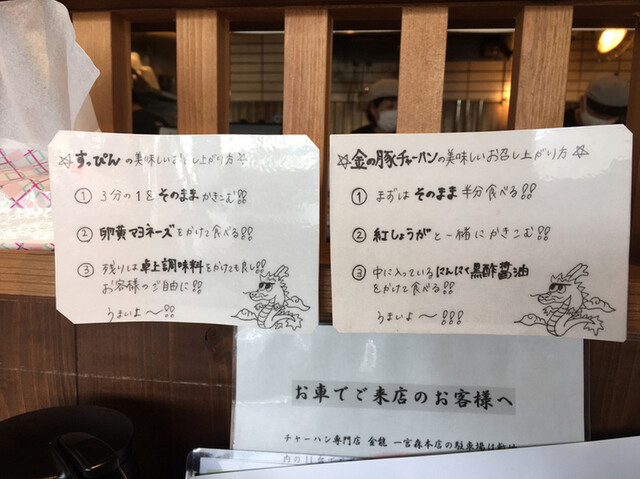 ☆すっぴんの美味しいお召し上がり方☆
① 3分の1をそのままかきこむ!!
② 卵黄マヨネーズをかけて食べる!!
③ 残りは卓上調味料をかけても良し!!
お客様のご自由に!!
うまいよ〜!!
☆金の豚チャーハンの美味しいお召し上がり方☆
① まずはそのまま半分食べる!!
② 紅しょうがと一緒にかきこむ!!
③ 中に入っているにんにく黒酢醤油
をかけて食べる!!
うまいよ〜!!!
お車でご来店のお客様へ
チャーハン専門店 金龍 一宮森本店の駐車場は